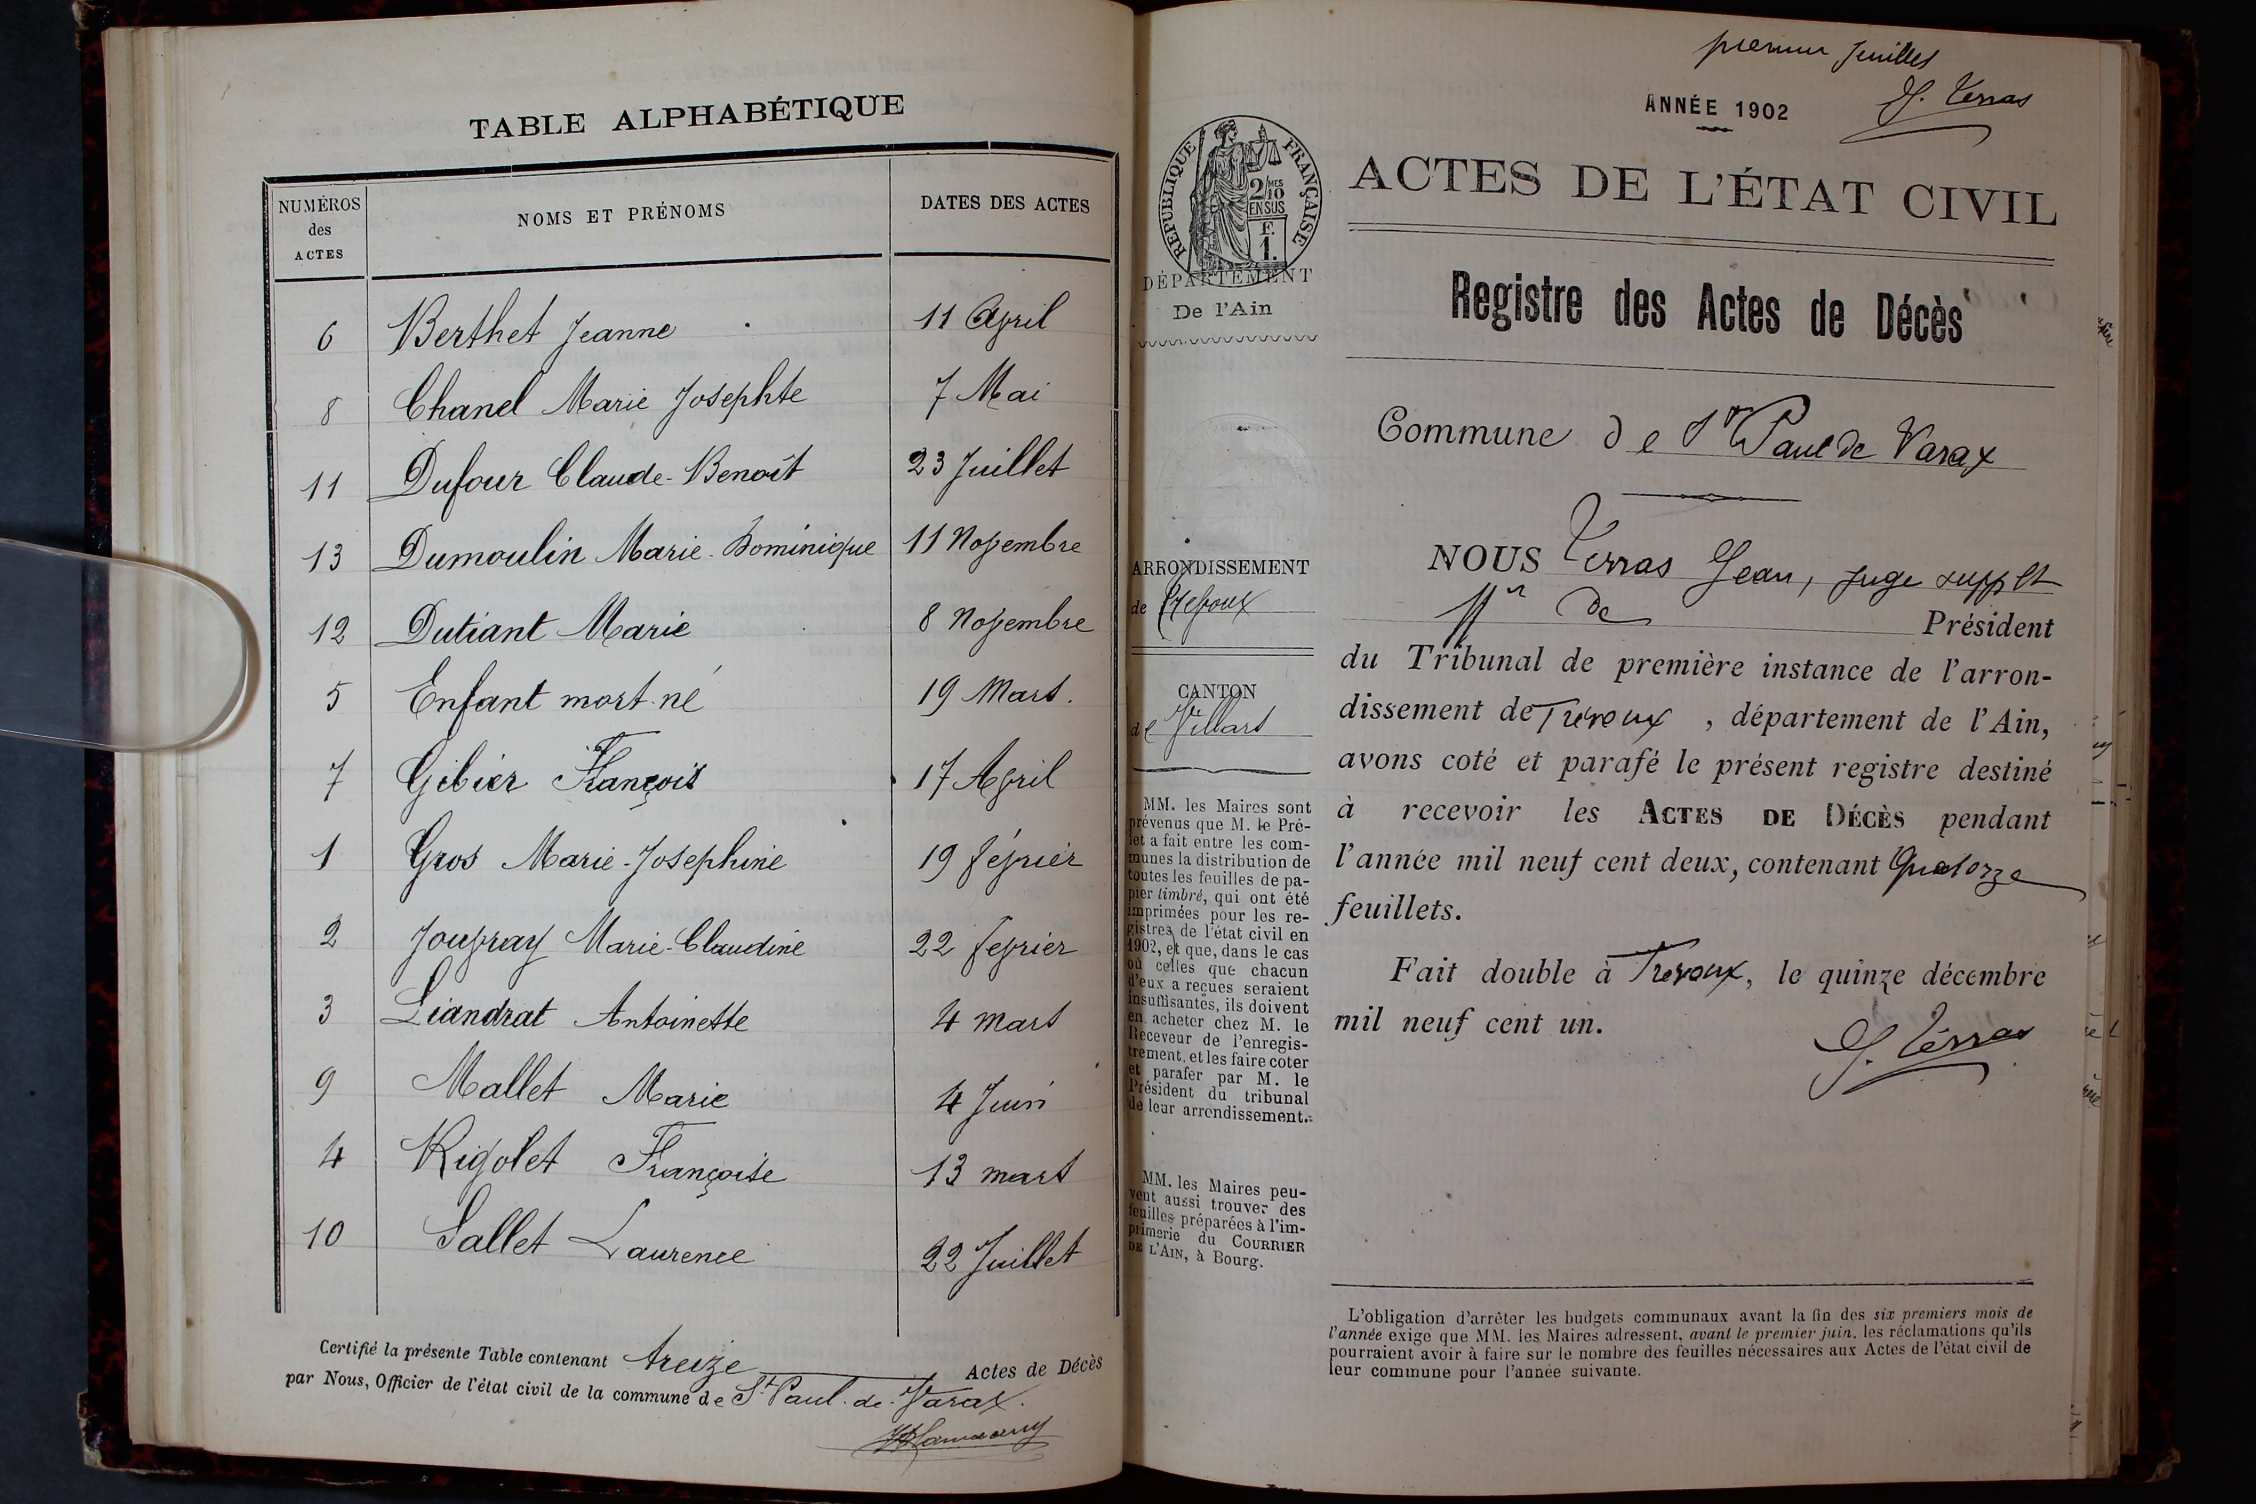 TABLE ALPHABÉTIQUE
NUMÉROS des ACTES NOMS ET PRÉNOMS DATES DES ACTES
6 Berthet Jeanne 11 Avril
8 Chanel Marie Josephte 7 Mai
11 Dufour Claude-Benoît 23 Juillet
13 Dumoulin Marie-Dominique 11 Novembre
12 Dutiant Marie 8 Novembre
5 Enfant mort-né 19 Mars.
7 Gibier François 17 Avril
1 Gros Marie-Josephine 19 février
2 Jouvray Marie-Claudine 22 fevrier
3 Liandrat Antoinette 4 mars
9 Mallet Marie 4 Juin
4 Rigolet Françoise 13 mars
10 Sallet Laurence 22 Juillet
Certifié la présente Table contenant treize Actes de Décès
par Nous, Officier de l'état civil de la commune de St Paul-de-Varax.
premier feuillet
ANNÉE 1902
J. Terras
RÉPUBLIQUE FRANÇAISE
2/10 MES
EN SUS
F.
1.
DÉPARTEMENT
De l'Ain
ARRONDISSEMENT
de Trévoux
CANTON
de Villars
MM. les Maires sont
prévenus que M. le Pré-
fet a fait entre les com-
munes la distribution de
toutes les feuilles de pa-
pier timbré, qui ont été
imprimées pour les re-
gistres de l'état civil en
1902, et que, dans le cas
où celles que chacun
d'eux a reçues seraient
insuffisantes, ils doivent
en acheter chez M. le
Receveur de l'enregis-
trement, et les faire coter
et parafer par M. le
Président du tribunal
de leur arrondissement.
MM. les Maires peu-
vent aussi trouver des
feuilles préparées à l'im-
primerie du COURRIER
DE L'AIN, à Bourg.
ACTES DE L'ÉTAT CIVIL
Registre des Actes de Décès
Commune de St Paul de Varax
NOUS Terras Jean, juge suppt
ff n de Président
du Tribunal de première instance de l'arron-
dissement de Trévoux, département de l'Ain,
avons coté et parafé le présent registre destiné
à recevoir les ACTES DE DÉCÈS pendant
l'année mil neuf cent deux, contenant Quatorze
feuillets.
Fait double à Trevoux, le quinze décembre
mil neuf cent un.
J. Terras
L'obligation d'arrêter les budgets communaux avant la fin des six premiers mois de
l'année exige que MM. les Maires adressent, avant le premier juin, les réclamations qu'ils
pourraient avoir à faire sur le nombre des feuilles nécessaires aux Actes de l'état civil de
leur commune pour l'année suivante.